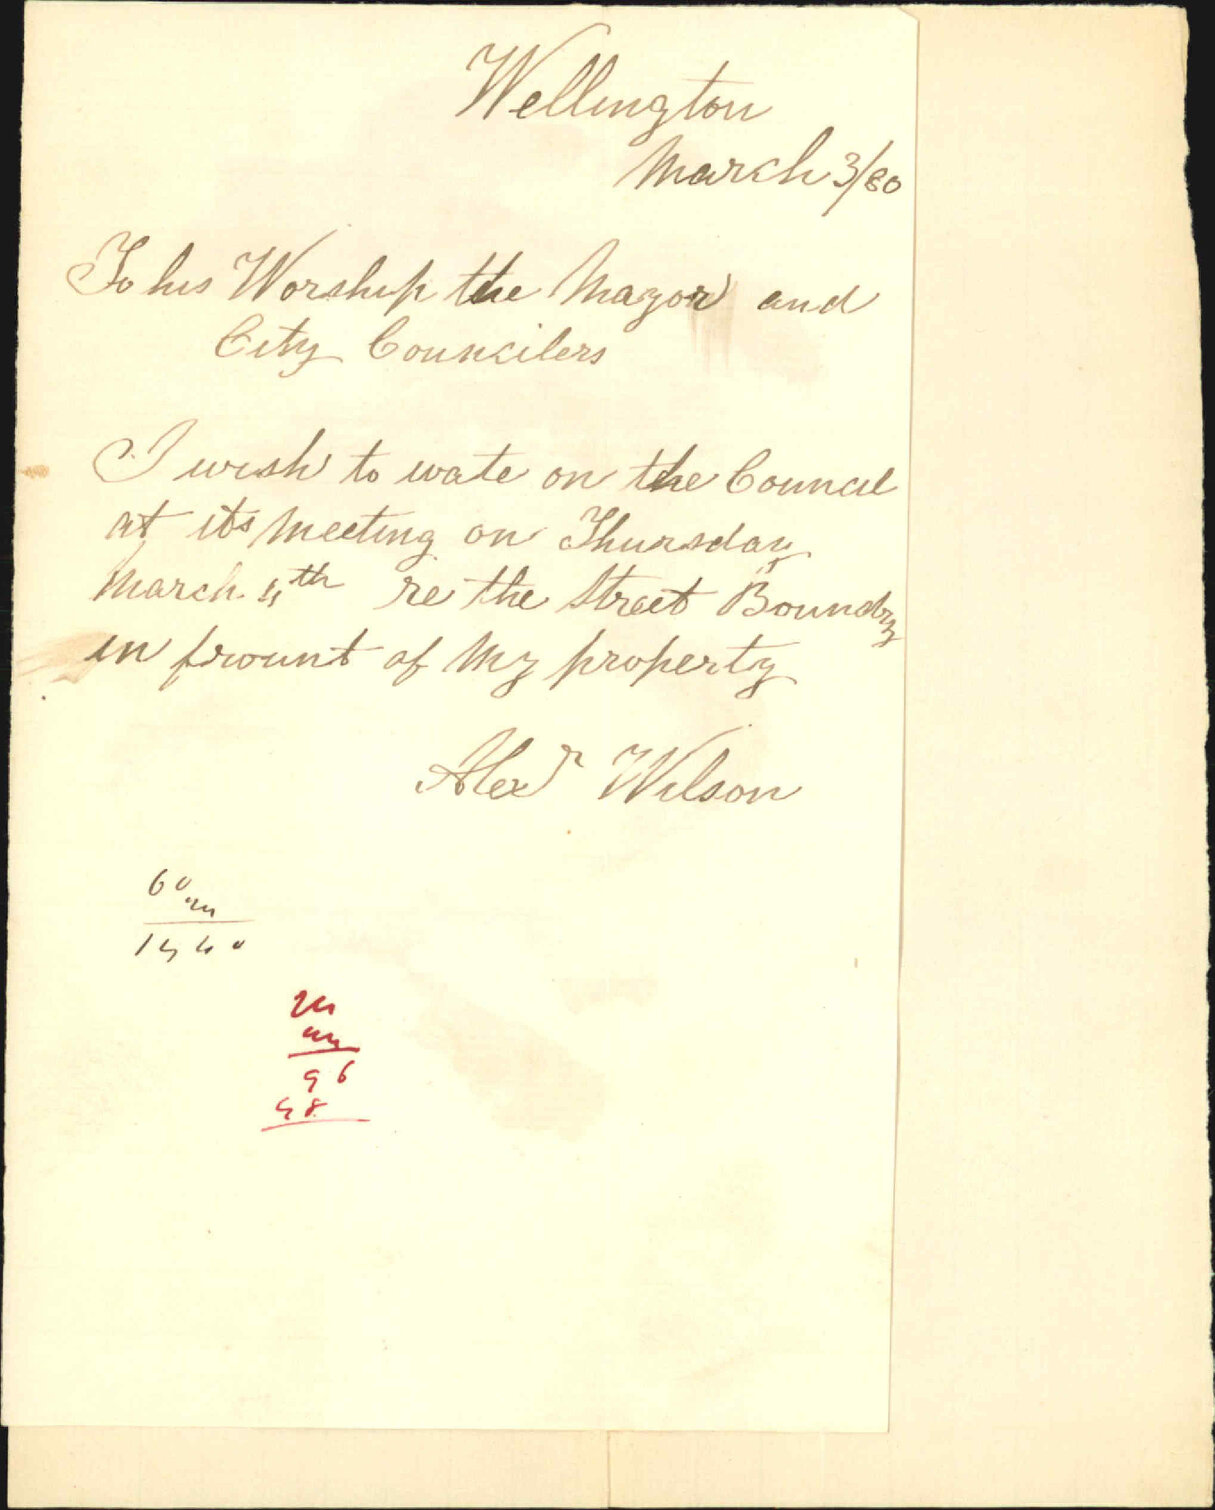 Wellington
March 3/80
To his Worship the Mayor and
City Councilers
I wish to wate on the Council
at its Meeting on Thursday
March 4th re the Street Boundry
in frount of My property
Alexr Wilson
60
24
1440
24
24
96
48